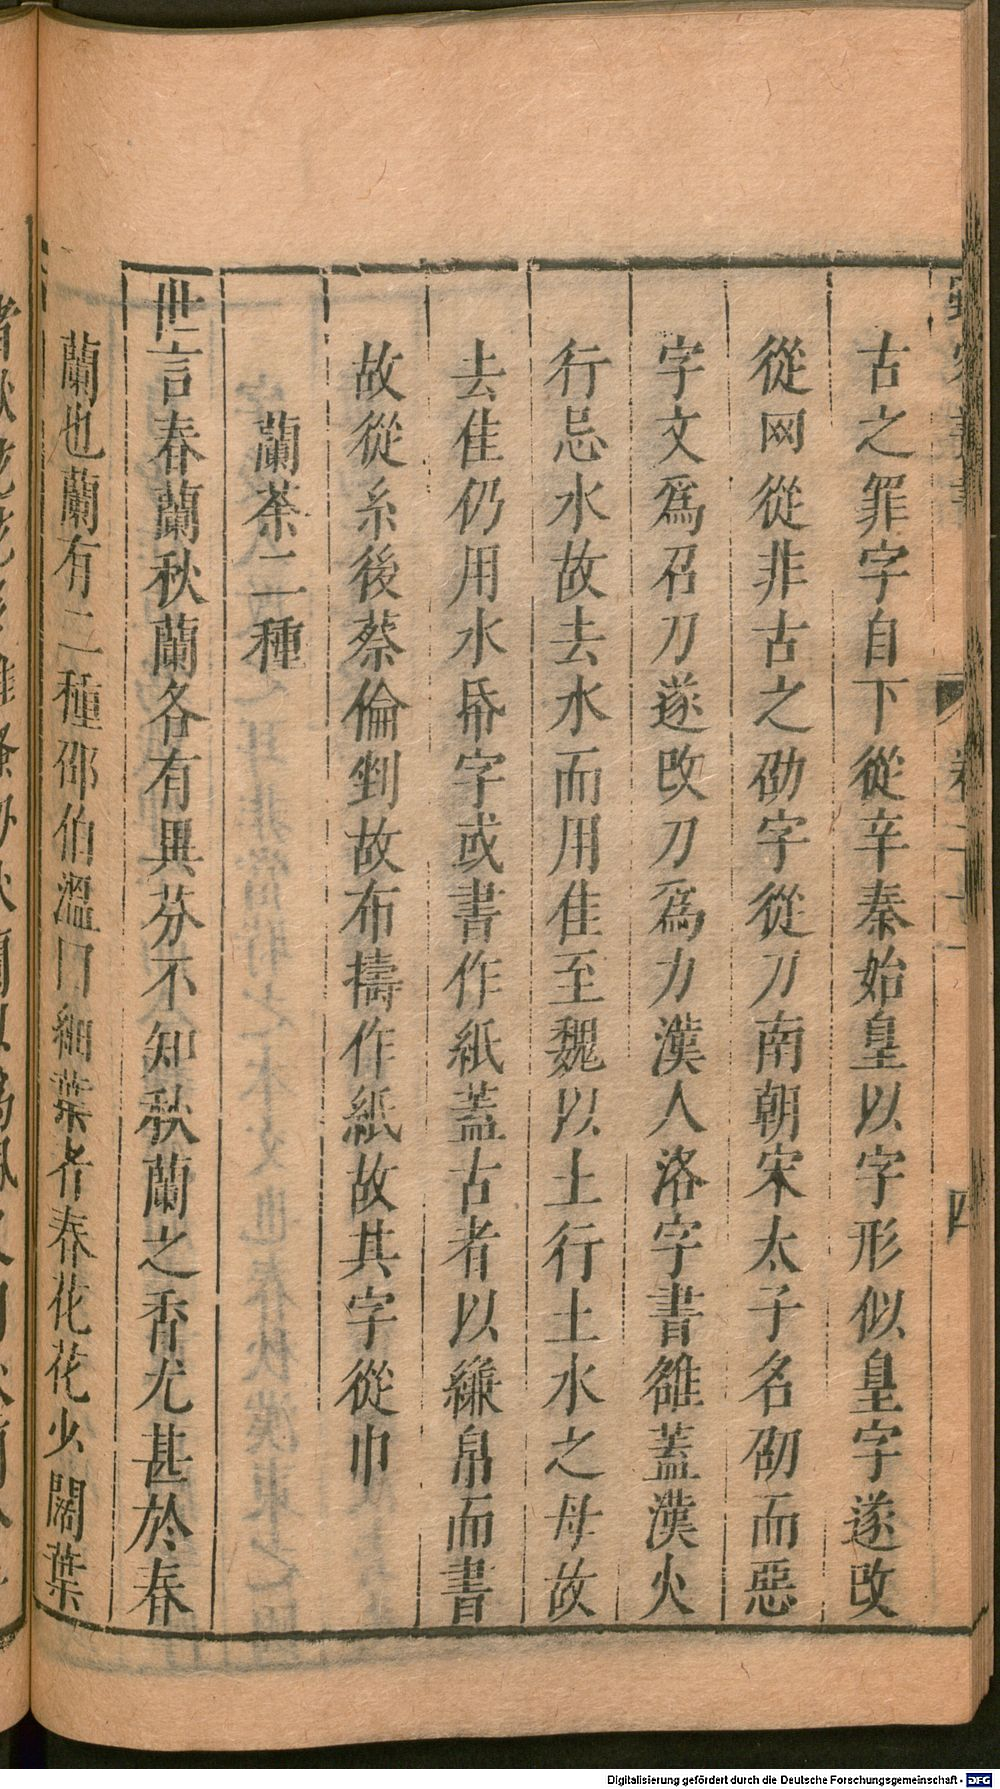 古之罪字自下從辛秦始皇以字形似皇字遂改
從网從非古之劭字從刀南朝宋太子名劭而惡
字文爲召刀遂改刀爲力漢人洛字書雒蓋漢火
行忌水故去水而用隹至魏以土行土水之母故
去隹仍用水帋字或書作紙蓋古者以縑帛而書
故從糸後蔡倫剉故布擣作紙故其字從巾
蘭荼二種
世言春蘭秋蘭各有異芬不知秋蘭之香尤甚於春
蘭也蘭有二種邵伯溫曰細葉者春花花少闊葉
Digitalisierung gefördert durch die Deutsche Forschungsgemeinschaft - DFG